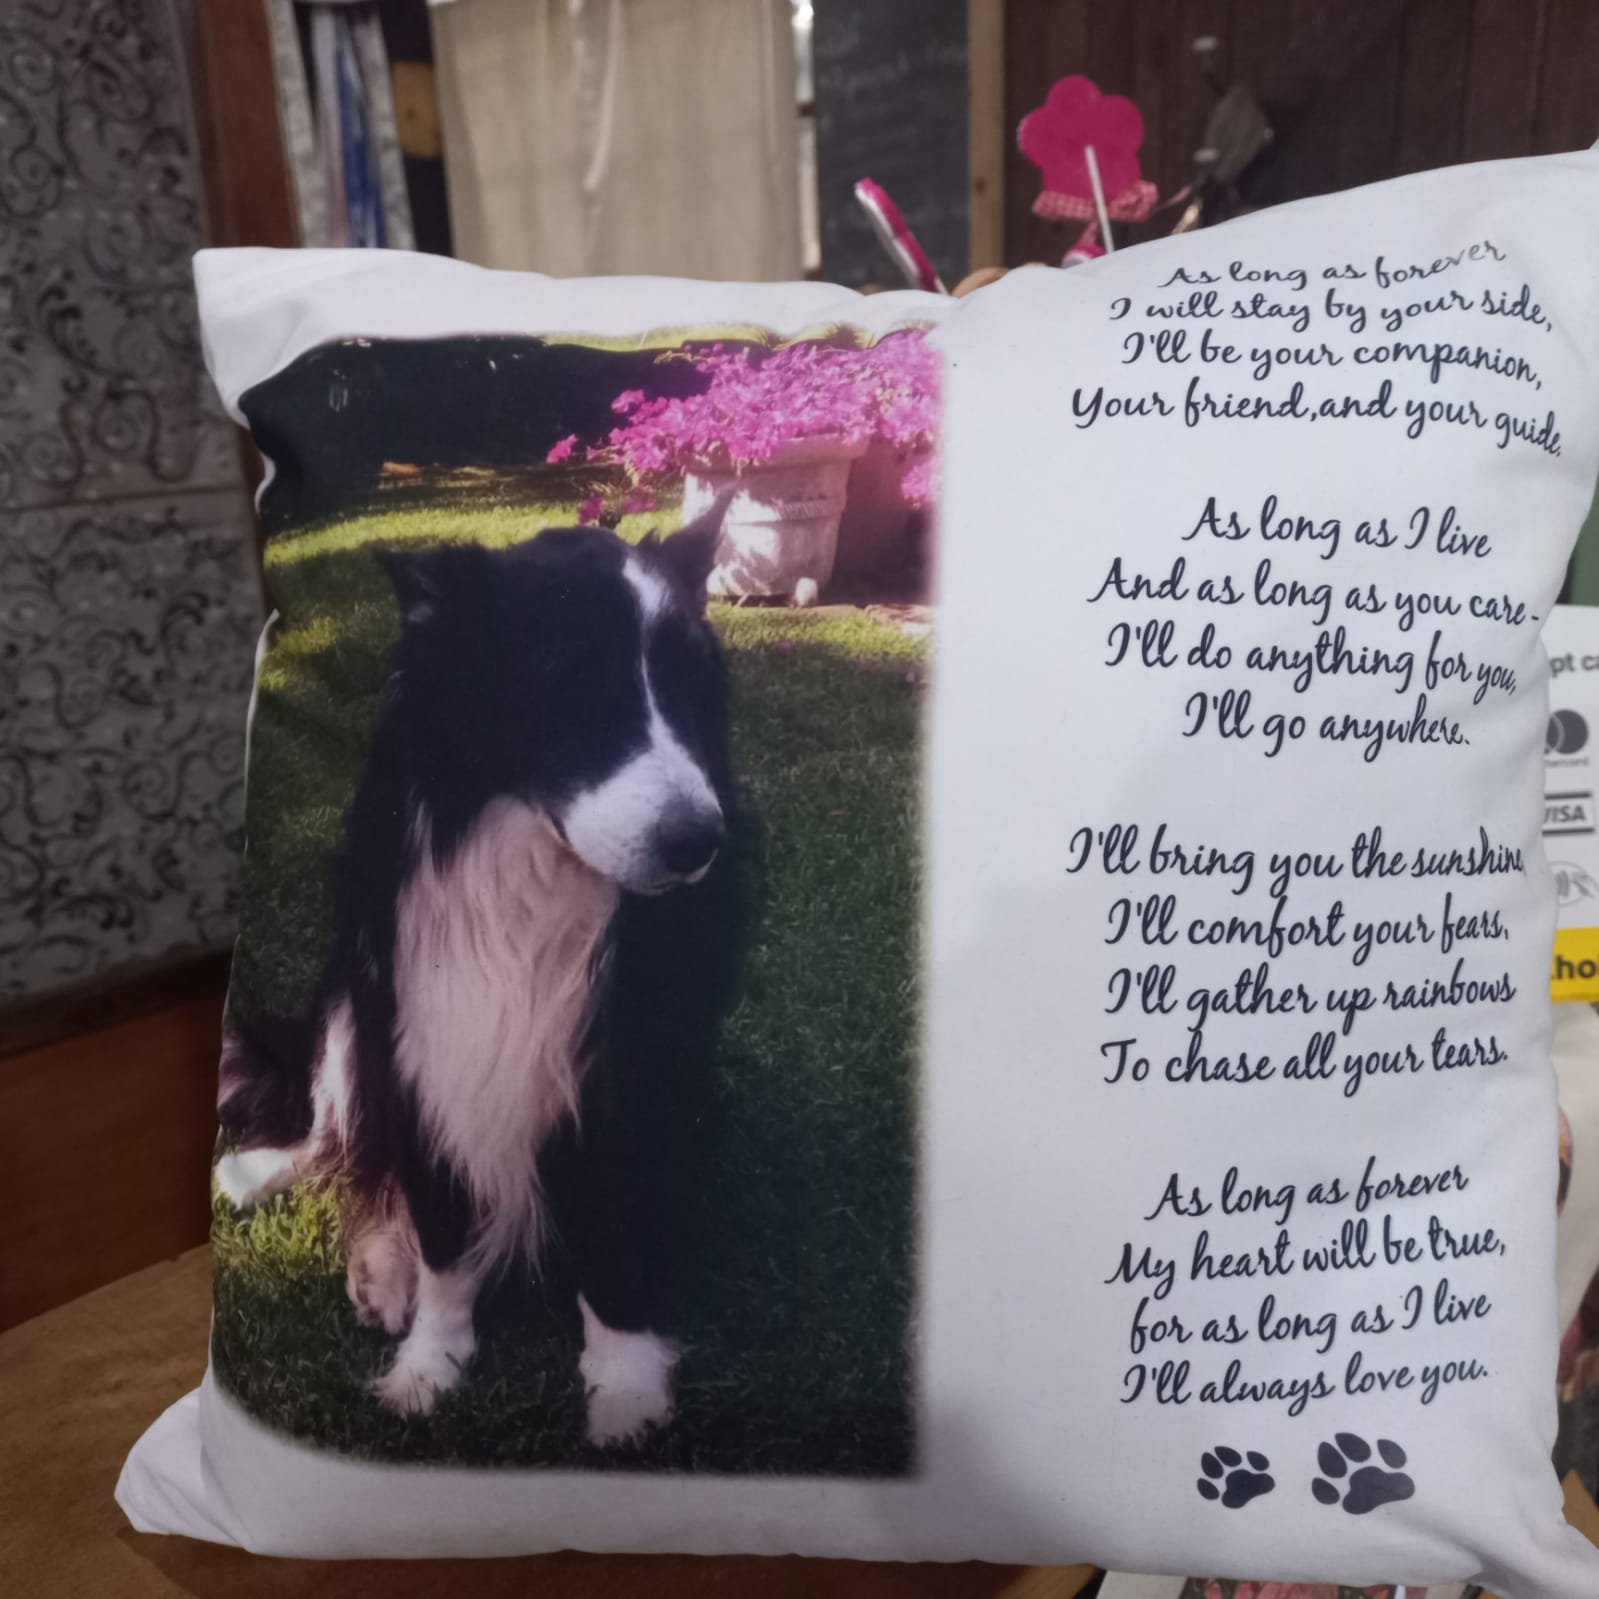 As long as forever
I will stay by your side,
I'll be your companion,
Your friend,and your guide.
As long as I live
And as long as you care-
I'll do anything for you,
I'll go anywhere.
I'll bring you the sunshine,
I'll comfort your fears,
I'll gather up rainbows
To chase all your tears.
As long as forever
My heart will be true,
for as long as I live
I'll always love you.
VISA